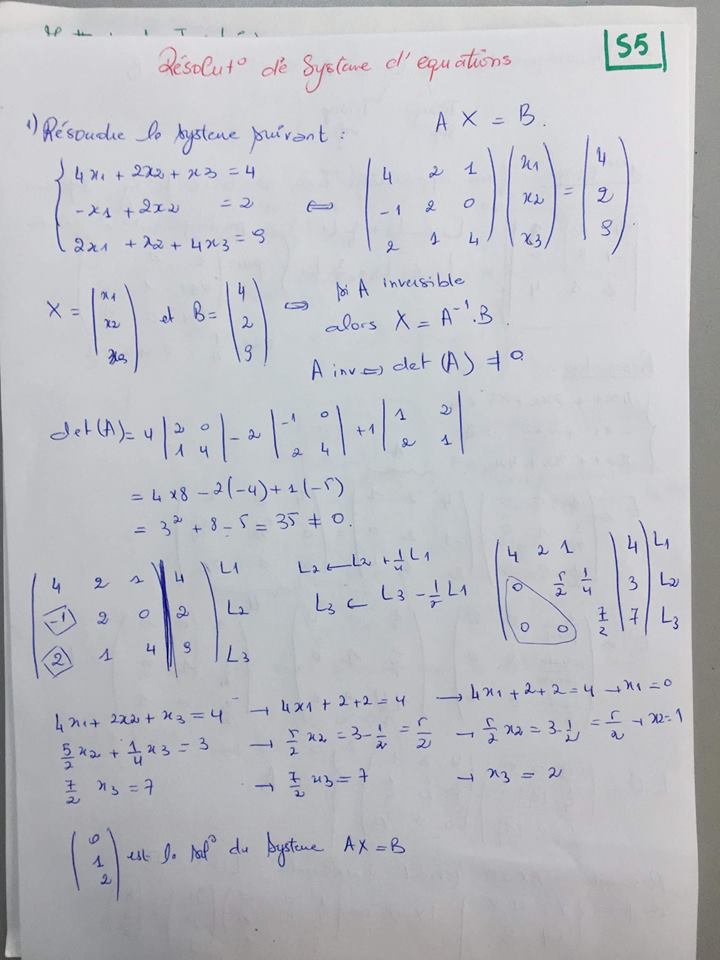 S5
Résolut° de Systeme d'equations
1) Résoudre le systeme suivant : A X = B.
{ 4x1 + 2x2 + x3 = 4
-x1 + 2x2 = 2
2x1 + x2 + 4x3 = 9
⇔ ( 4 2 1 ) ( x1 ) = ( 4 )
( -1 2 0 ) ( x2 ) ( 2 )
( 2 1 4 ) ( x3 ) ( 9 )
X = ( x1 x2 x3 ) et B = ( 4 2 9 ) ⇔ si A inversible
alors X = A⁻¹.B.
A inv ⇔ det (A) ≠ 0
det(A) = 4 | 2 0 | - 2 | -1 0 | + 1 | 1 2 |
| 1 4 | | 2 4 | | 2 1 |
= 4x8 - 2(-4) + 1(-5)
= 3² + 8 - 5 = 35 ≠ 0.
( 4 2 1 | 4 ) L1
( -1 2 0 | 2 ) L2
( 2 1 4 | 9 ) L3
L2 ← L2 + 1/4 L1
L3 ← L3 - 1/2 L1
( 4 2 1 | 4 ) L1
( 0 5/2 1/4 | 3 ) L2
( 0 0 7/2 | 7 ) L3
4x1 + 2x2 + x3 = 4 → 4x1 + 2 + 2 = 4 → 4x1 + 2 + 2 = 4 → x1 = 0
5/2 x2 + 1/4 x3 = 3 → 5/2 x2 = 3 - 1/2 = 5/2 → 5/2 x2 = 3 - 1/2 = 5/2 → x2 = 1
7/2 x3 = 7 → 7/2 x3 = 7 → x3 = 2
( 0 1 2 ) est la sol° du Systeme AX = B